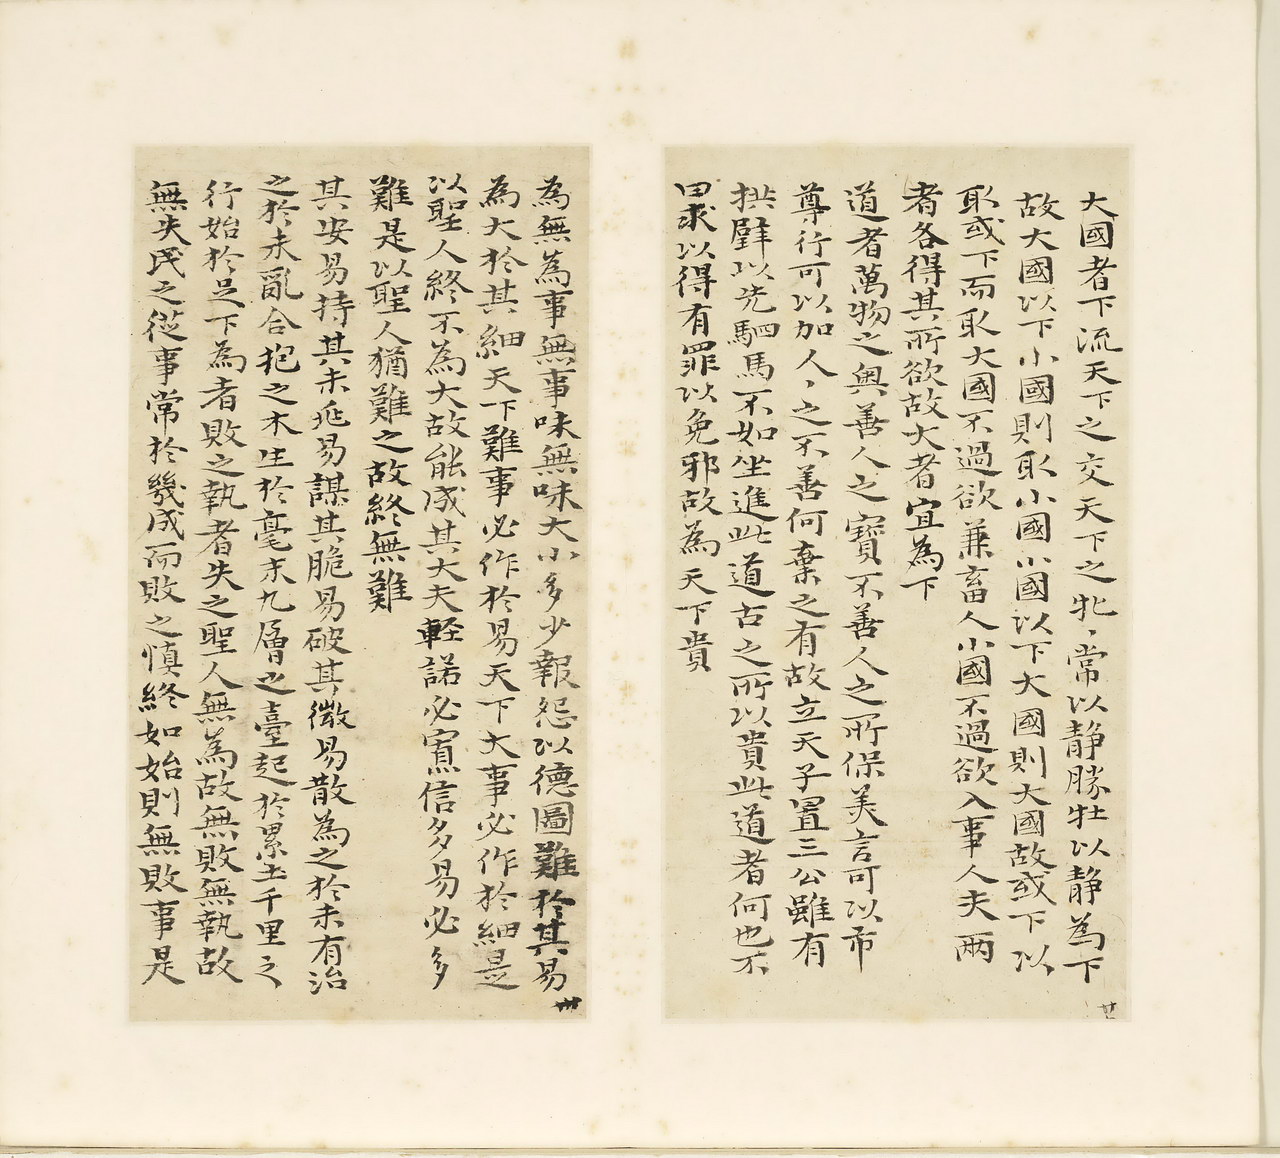 大國者下流天下之交天下之牝、常以静勝牡以静為下
故大國以下小國則取小國小國以下大國則大國故或下以
取或下而取大國不過欲兼畜人小國不過欲入事人夫兩
者各得其所欲故大者宜為下
道者萬物之奥善人之寶不善人之所保美言可以市
尊行可以加人、之不善何棄之有故立天子置三公雖有
拱璧以先駟馬不如坐進此道古之所以貴此道者何也不
曰求以得有罪以免邪故為天下貴
為無為事無事味無味大小多少報怨以德圖難於其易
為大於其細天下難事必作於易天下大事必作於細是
以聖人終不為大故能成其大夫軽諾必寡信多易必多
難是以聖人猶難之故終無難
其安易持其未兆易謀其脆易破其微易散為之於未有治
之於未亂合抱之木生於毫末九層之臺起於累土千里之
行始於足下為者敗之執者失之聖人無為故無敗無執故
無失民之從事常於幾成而敗之慎終如始則無敗事是